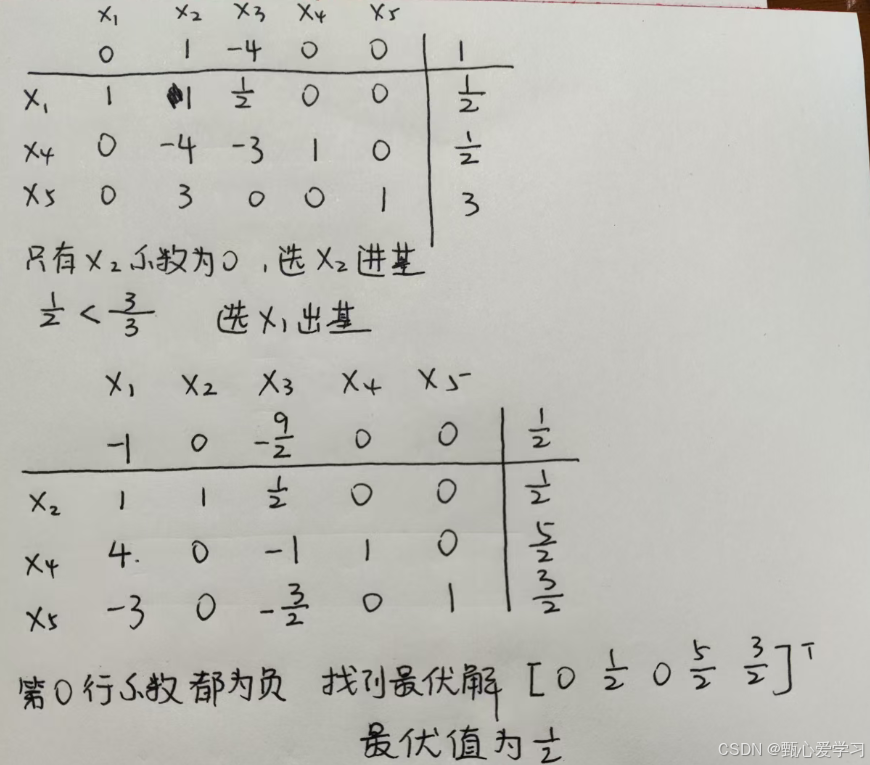 x₁ x₂ x₃ x₄ x₅
0 1 -4 0 0 1
x₁ 1 1 1/2 0 0 1/2
x₄ 0 -4 -3 1 0 1/2
x₅ 0 3 0 0 1 3
只有x₂系数为0,选x₂进基
1/2 < 3/3 选x₁出基
x₁ x₂ x₃ x₄ x₅
-1 0 -9/2 0 0 1/2
x₂ 1 1 1/2 0 0 1/2
x₄ 4 0 -1 1 0 5/2
x₅ -3 0 -3/2 0 1 3/2
第0行系数都为负 找到最优解 [0 1/2 0 5/2 3/2]ᵀ
最优值为1/2
CSDN @甄心爱学习